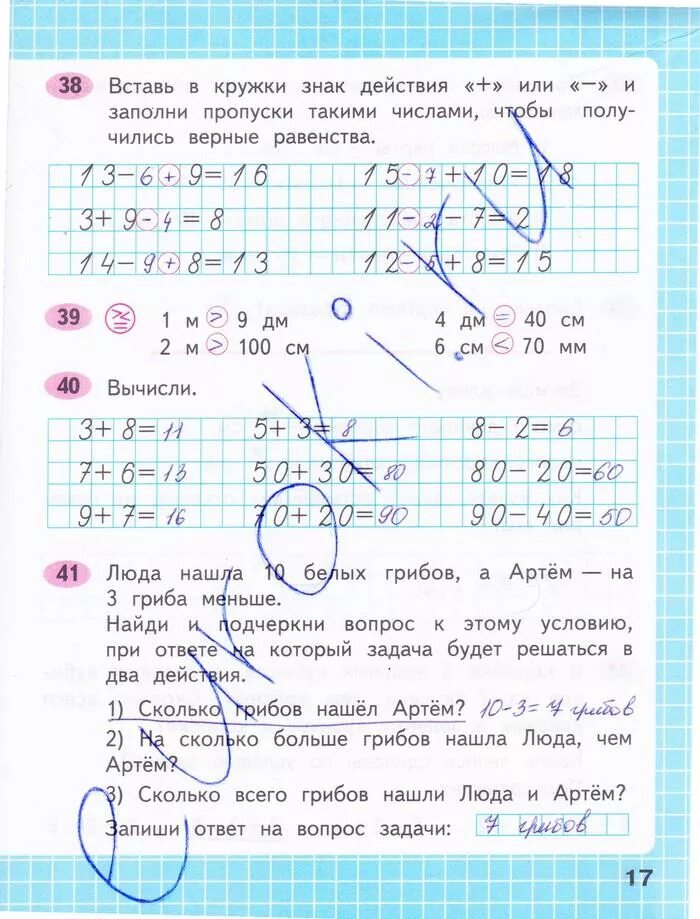 38 Вставь в кружки знак действия «+» или «−» и
заполни пропуски такими числами, чтобы полу-
чились верные равенства.
13−6+9=16 15−7+10=18
3+9−4=8 11−2−7=2
14−9+8=13 12−5+8=15
39 1 м > 9 дм 4 дм = 40 см
2 м > 100 см 6 см < 70 мм
40 Вычисли.
3+8=11 5+3=8 8−2=6
7+6=13 50+30=80 80−20=60
9+7=16 70+20=90 90−40=50
41 Люда нашла 10 белых грибов, а Артём — на
3 гриба меньше.
Найди и подчеркни вопрос к этому условию,
при ответе на который задача будет решаться в
два действия.
1) Сколько грибов нашёл Артём? 10-3=7 грибов
2) На сколько больше грибов нашла Люда, чем
Артём?
3) Сколько всего грибов нашли Люда и Артём?
Запиши ответ на вопрос задачи: 7 грибов
17